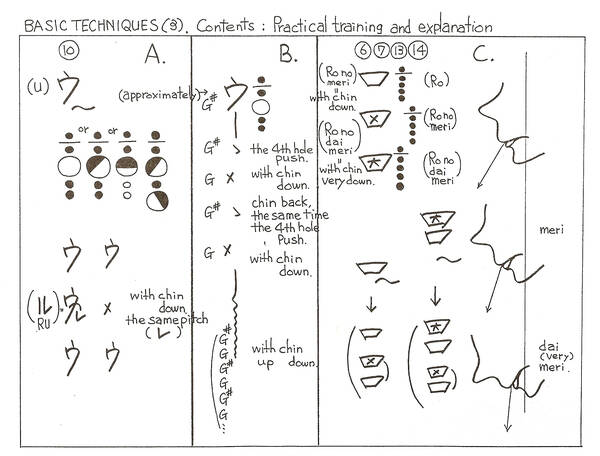 BASIC TECHNIQUES (3). Contents : Practical training and explanation
10 A.
(u) ウ
or or
ウ ウ
(ル RU) ウル x with chin down.
the same pitch
(レ)
ウ ウ
B.
(approximately)→ G# ウ
G# the 4th hole push.
G x with chin down.
G# chin back, the same time the 4th hole Push.
G x with chin down.
G#
G
G#
G
G#
G
...
with chin up down.
6 7 13 14 C.
(Ro no meri) (Ro)
" with chin down.
x (Ro no meri)
(Ro no dai meri)
" with chin very down. (Ro no dai meri)
meri
dai (very) meri.